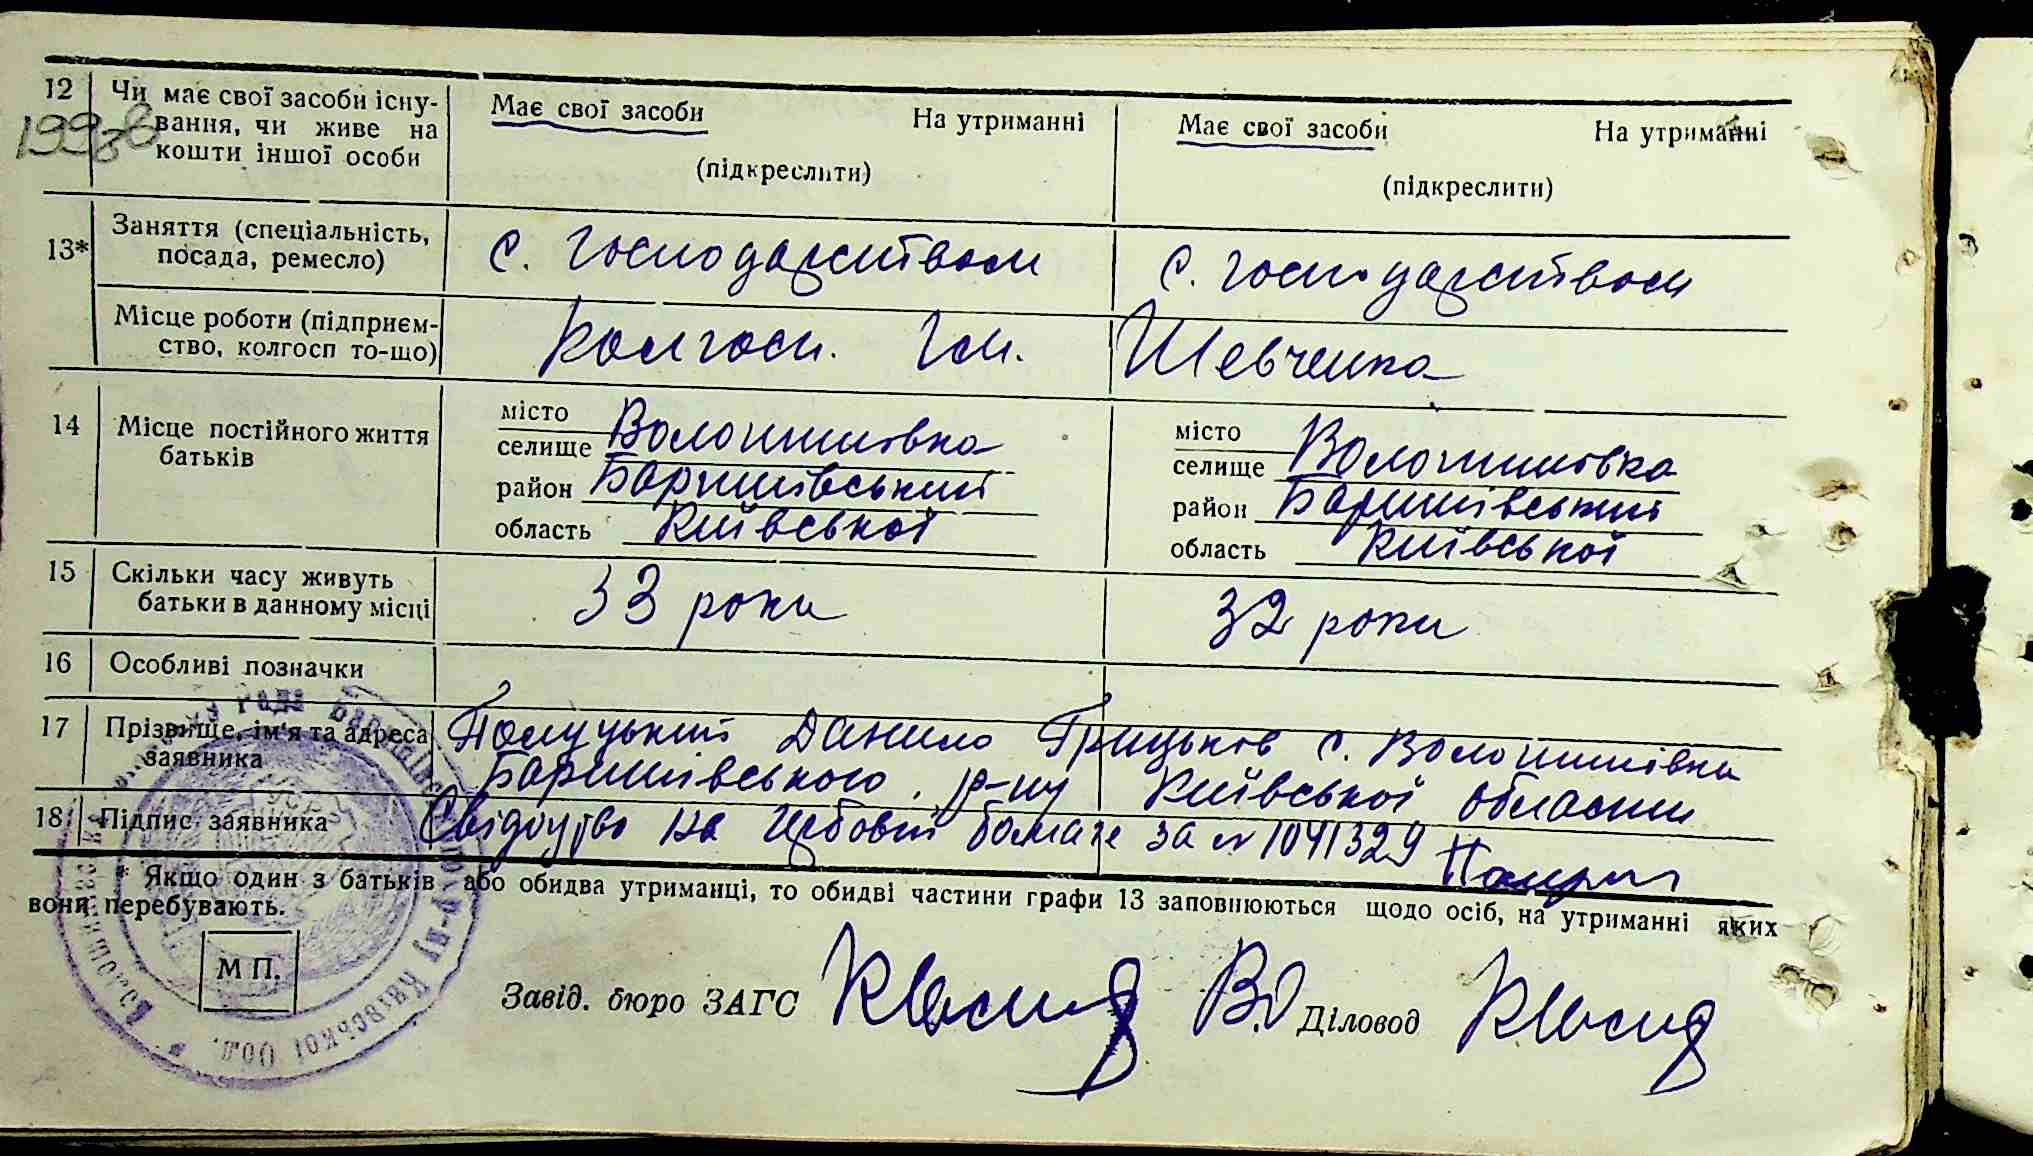 12 Чи має свої засоби існу-
вання, чи живе на
кошти іншої особи
Має свої засоби На утриманні
(підкреслити)
Має свої засоби На утриманні
(підкреслити)
13* Заняття (спеціальність,
посада, ремесло)
с. господарством
с. господарством
Місце роботи (підприєм-
ство, колгосп то-що)
Колгосп. Ім. Шевченка
14 Місце постійного життя
батьків
місто
селище Волошинівка
район Баришівський
область Київської
місто
селище Волошинівка
район Баришівський
область Київської
15 Скільки часу живуть
батьки в данному місці
33 роки
32 роки
16 Особливі позначки
17 Прізвище, ім'я та адреса
заявника
Данило Грицьков с. Волошинівка
Баришівського р-ну Київської області
18 Підпис заявника
Свідоцтво на Гербовій бомазе за № 1041329
* Якщо один з батьків або обидва утриманці, то обидві частини графи 13 заповнюються щодо осіб, на утриманні яких
вони перебувають.
М П.
Завід. бюро ЗАГС
Діловод
рада Баришівського р-ну Київської Обл.